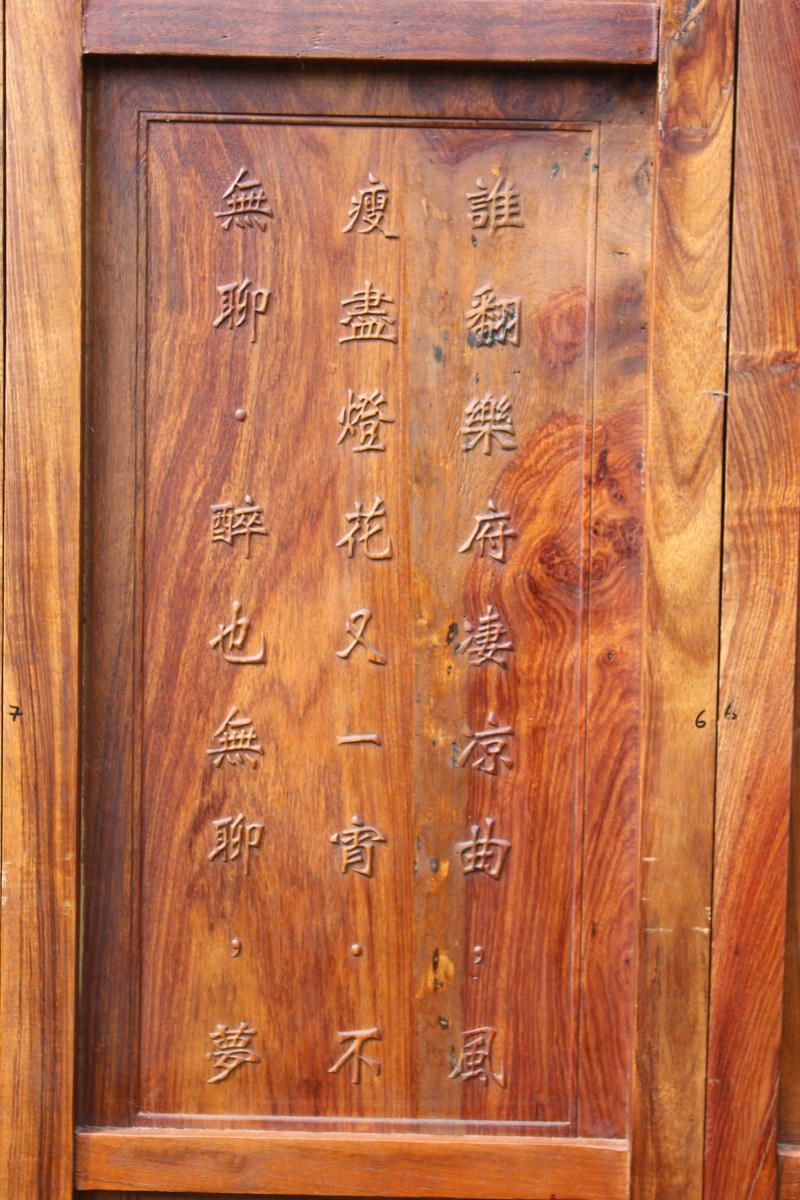 誰翻樂府凄凉曲；風
瘦盡燈花又一宵．不
無聊．醉也無聊，夢
7
6
6